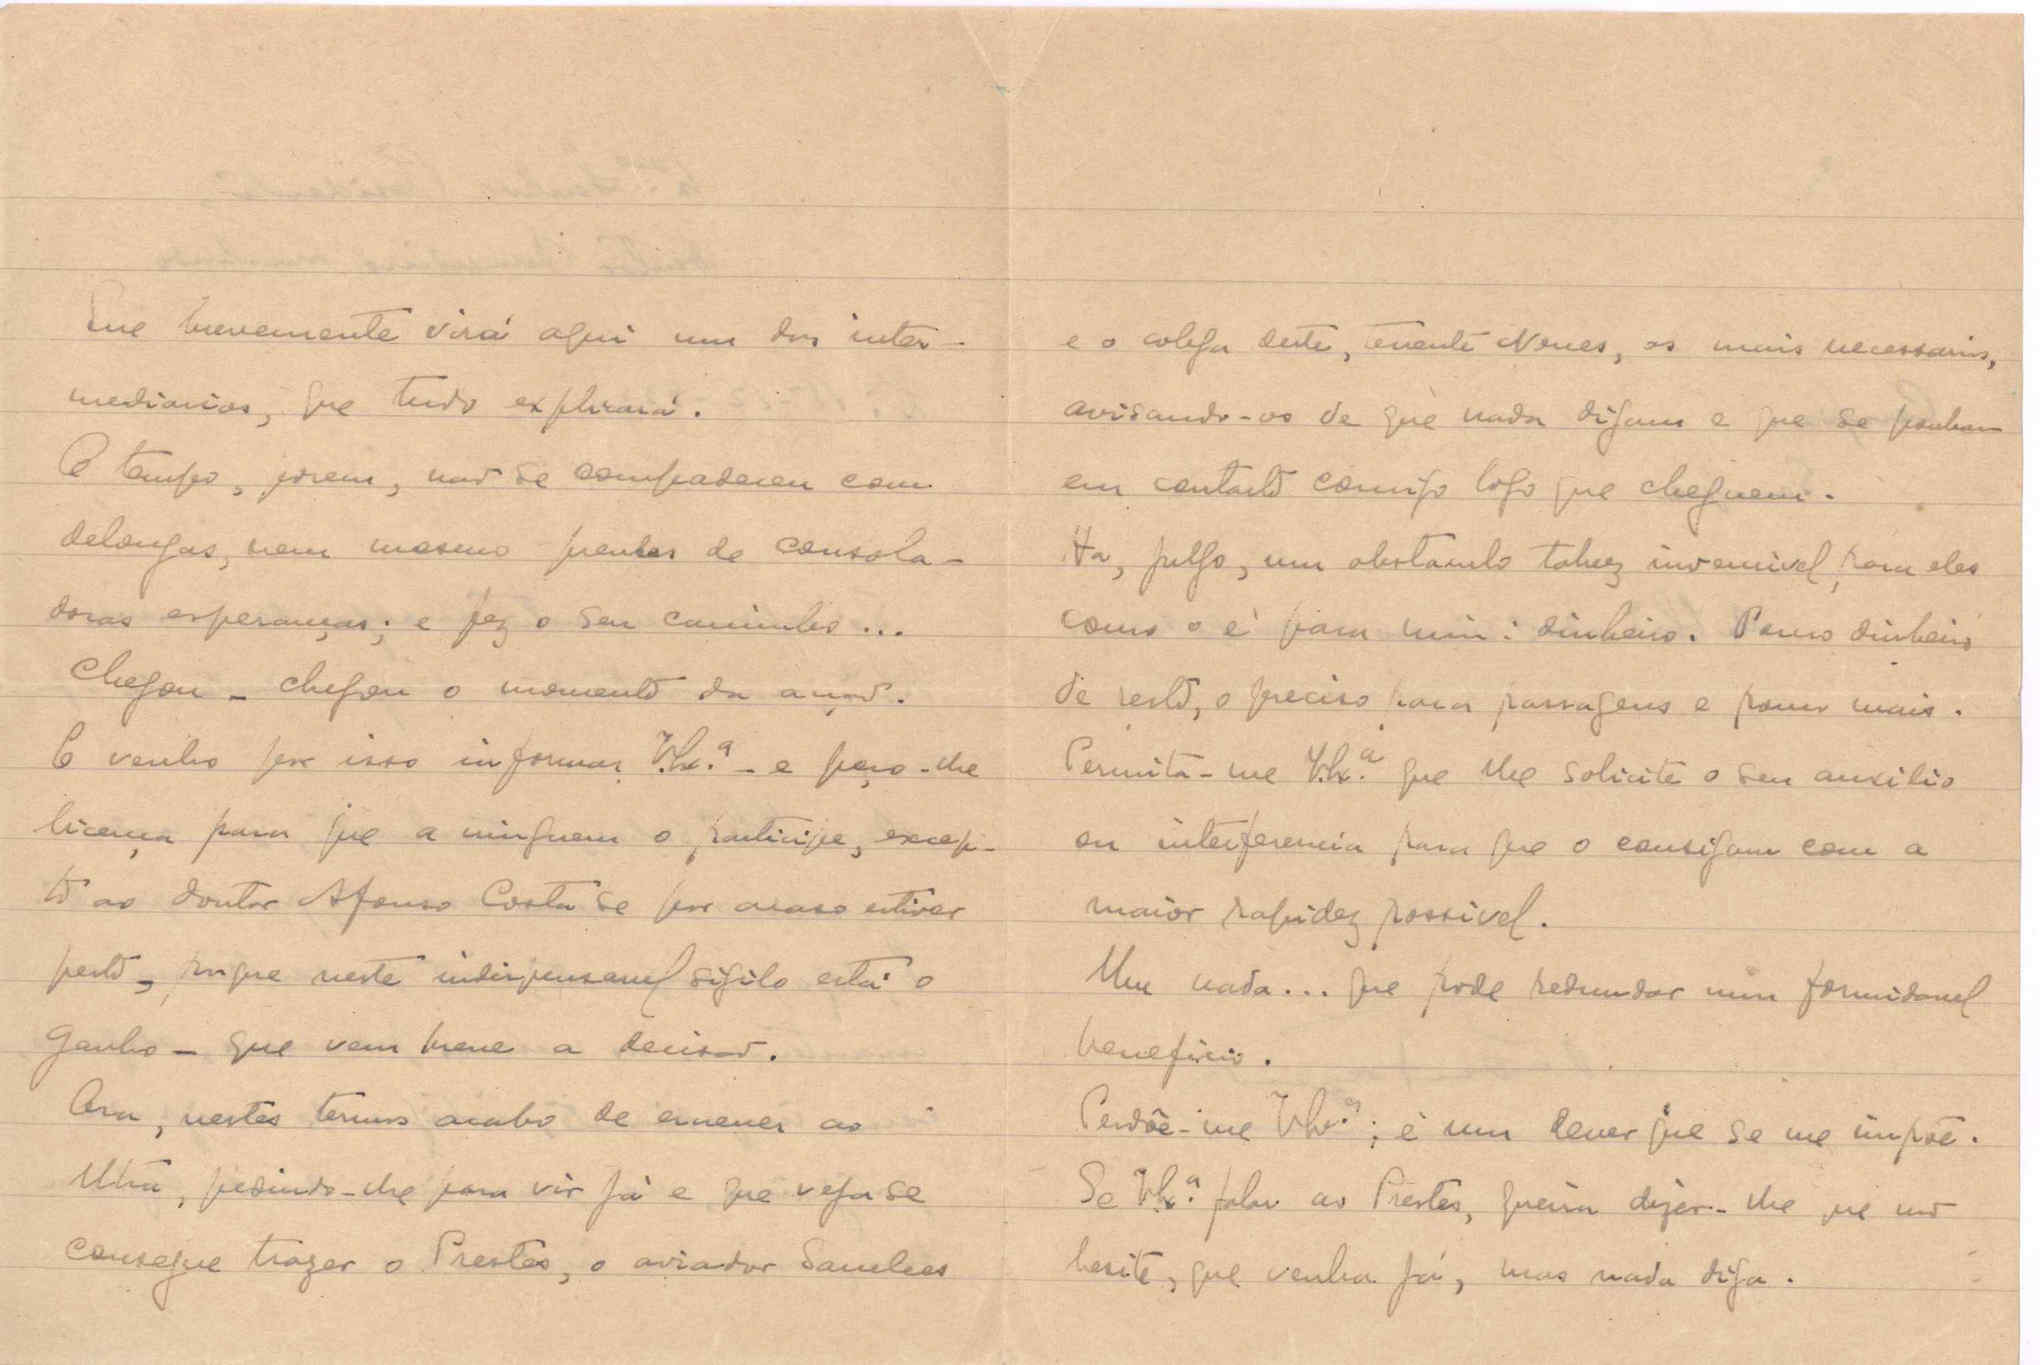 Que brevemente virá aqui um dos inter-
mediarios, que tudo explicará.
O tempo, porem, não se compadeceu com
delongas, nem mesmo prenhes de consola-
doras esperanças; e fez o seu caminho...
Chegou - chegou o momento da acção.
E venho por isso informar V.Ex.ª - e peço-lhe
licença para que a ninguem o participe, excep-
to ao doutor Afonso Costa se por acaso estiver
perto, porque neste indispensavel sigilo está o
ganho - que vem breve a decisão.
Ora, nestes termos acabo de escrever ao
Utra, pedindo-lhe para vir já e que veja se
consegue trazer o Prestes, o aviador Sanches
e o colega deste, tenente Neves, os mais necessarios,
avisando-os de que nada digam e que se ponham
em contacto comigo logo que cheguem.
Ha, julgo, um obstaculo talvez invencivel, para eles
como o é para mim: dinheiro. Pouco dinheiro
de resto, o preciso para passagens e pouco mais.
Permita-me V.Ex.ª que lhe solicite o seu auxilio
ou interferencia para que o consigam com a
maior rapidez possivel.
Um nada... que pode redundar num formidavel
beneficio.
Perdõe-me V.Ex.ª; é um dever que se me impõe.
Se V.Ex.ª falar ao Prestes, queira dizer-lhe que não
hesite, que venha já, mas nada diga.